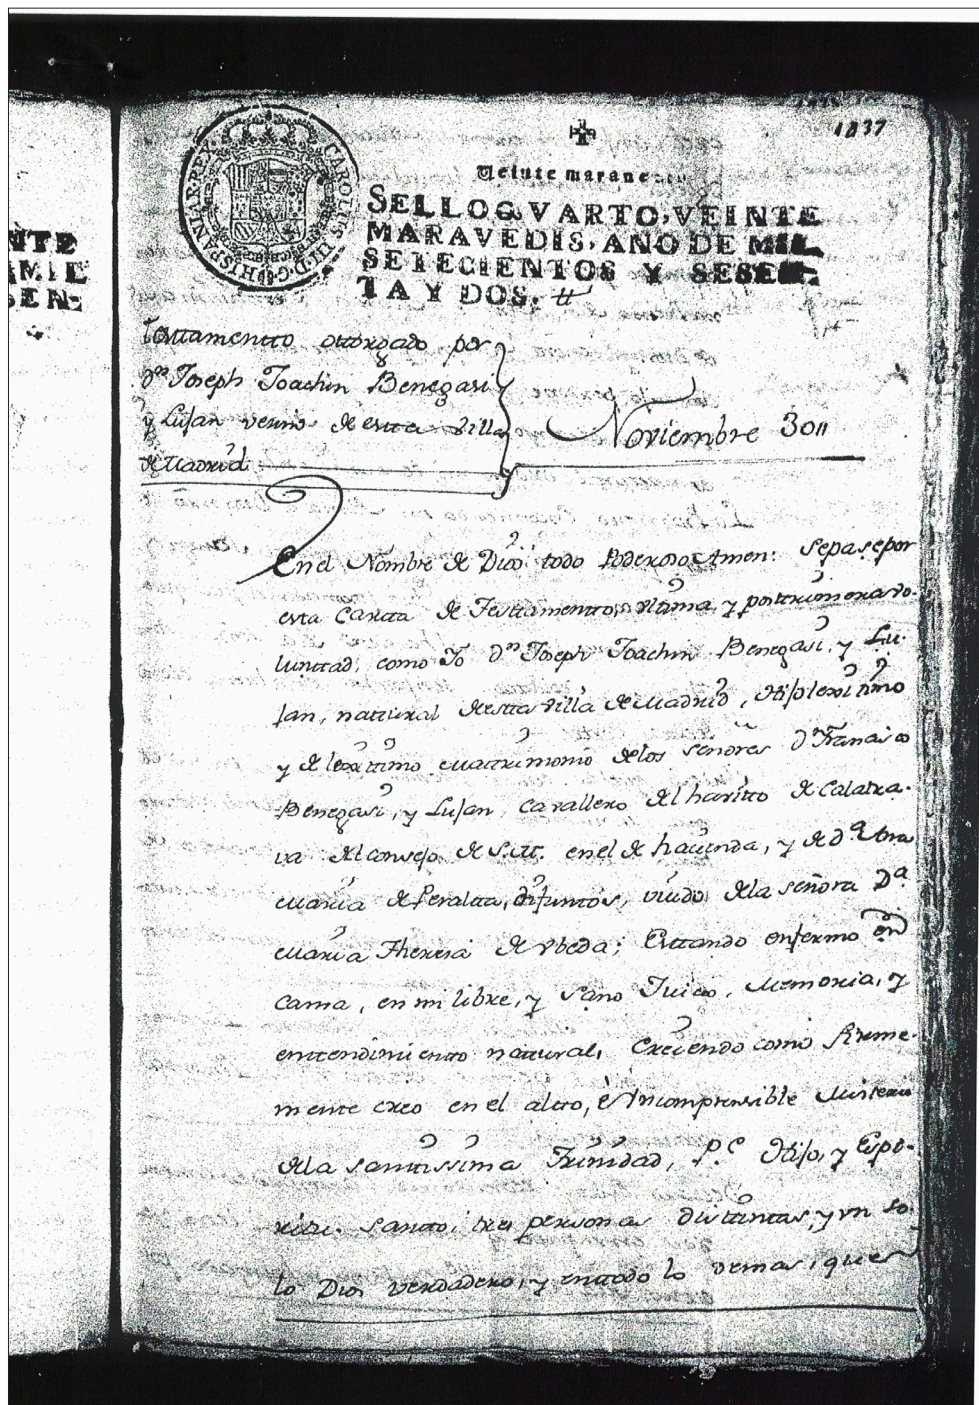 1837
Veinte marave
SELLO QVARTO, VEINTE
MARAVEDIS, AÑO DE MIL
SETECIENTOS Y SESEN-
TA Y DOS.
CAROLUS III D G HISPANIAR REX
NTE
AMIL
SEN:
Testamentto ottorgado por
Dn Joseph Joachin Benegasi
y Lujan vecino de estta villa
de Madrid
Noviembre 30
En el Nombre de Dios todo Poderoso Amen: sepase por
esta Cartta de Testtamentto, ulttima, y posttrimera vo-
lunttad, como Yo Dn Joseph Joachin Benegasi, y Lu-
jan, natural de estta villa de Madrid, Hijo lexitimo
y de lexittimo Mattrimonio de los señores Dn Francisco
Benegasi, y Lujan, Cavallero del havitto de Calatra-
va del consejo de S.M. en el de hacienda, y de Da Ana
Maria de Peralta, difunttos, viudo de la señora Da
Maria Theresa de Ubeda; Esttando enfermo en
cama, en mi libre, y sano Juicio, Memoria, y
enttendimientto natural, Creiendo como firme-
mente creo en el altto, è Yncomprensible Misterio
de la santissima Trinidad, Pe Hijo, y Espi-
ritu santto, tres personas disttinttas, y un so-
lo Dios verdadero, y en ttodo lo demas, que